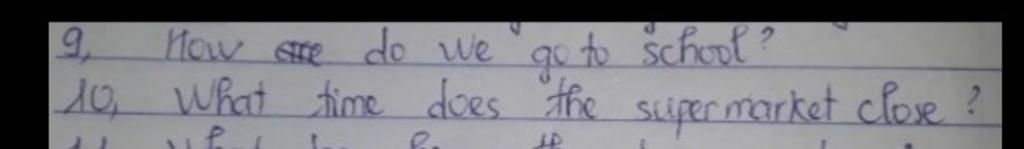 9, How do we go to school?
10, What time does the supermarket close?